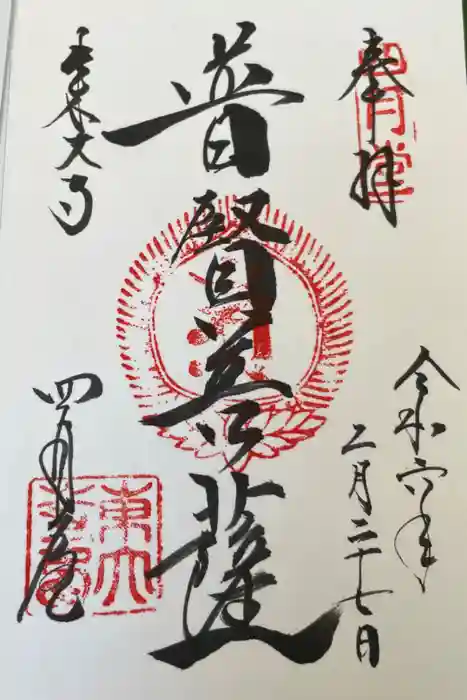 奉拝
四月堂
令和六年
二月二十七日
普賢菩薩
東大寺
四月堂